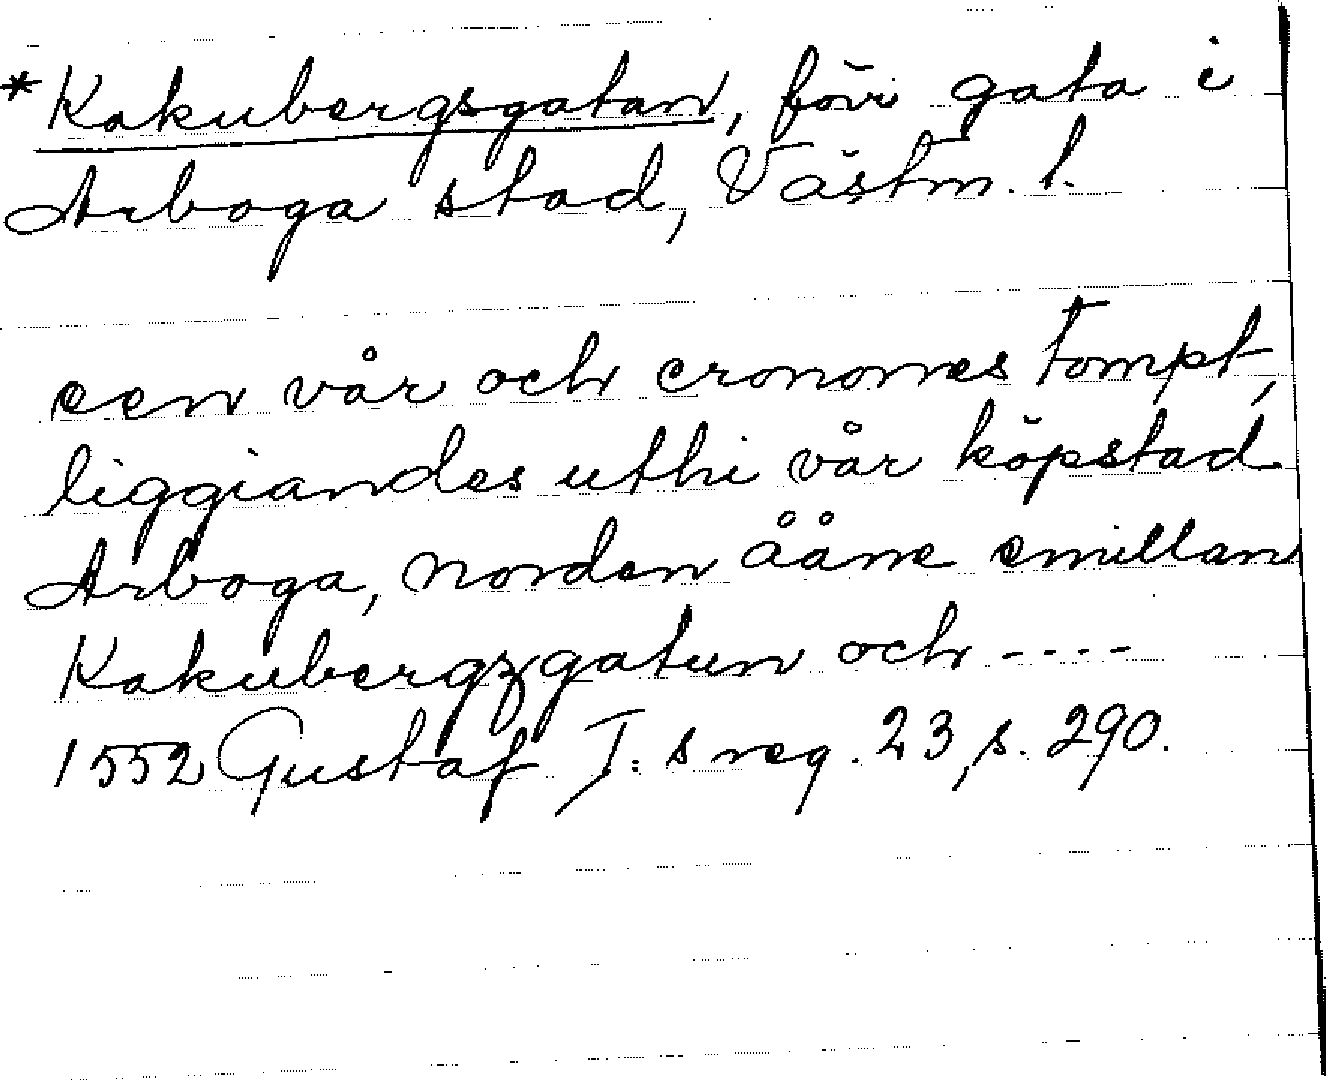 *Kakubergsgatan, förr gata i
Arboga stad, Västm. l.
een vår och cronones tompt,
liggiandes uthi vår köpstad
Arboga, norden ååne emillan
Kakubergzgatun och ----
1552 Gustaf I:s reg. 23, s. 290.